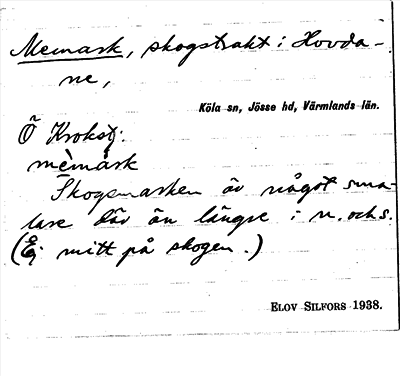 Memark, skogstrakt i Hovda-
ne,
Köla sn, Jösse hd, Värmlands län.
Ö Krokstj:
mèmárk
Skogsmarken är något sma-
lare där än längre i n. och s.
(Ej mitt på skogen.)
ELOV SILFORS 1938.